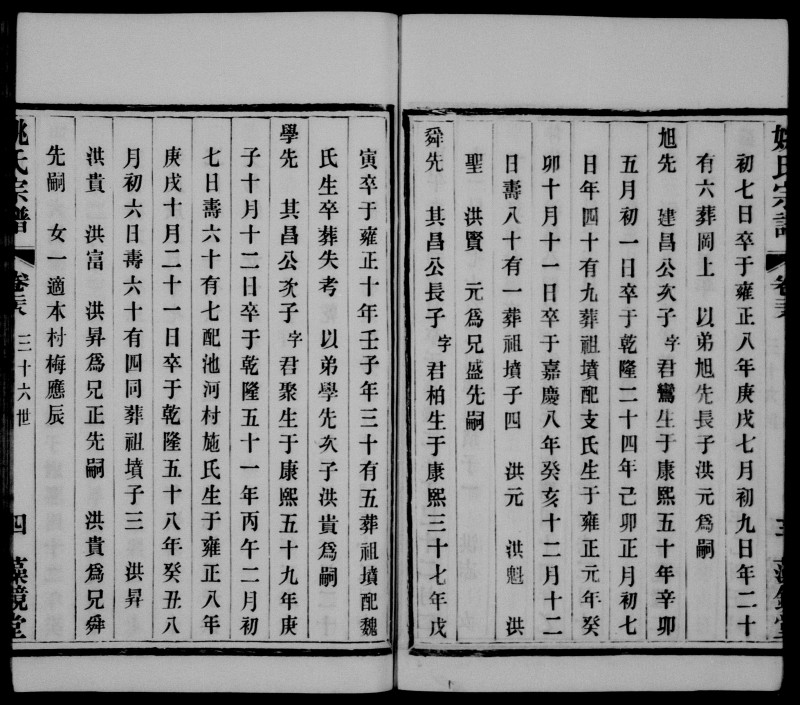 初七日卒于雍正八年庚戌七月初九日年二十
有六葬岡上 以弟旭先長子洪元爲嗣
旭先 建昌公次子字君鸞生于康熙五十年辛卯
五月初一日卒于乾隆二十四年己卯正月初七
日年四十有九葬祖墳配支氏生于雍正元年癸
卯十月十一日卒于嘉慶八年癸亥十二月十二
日壽八十有一葬祖墳子四 洪元 洪魁 洪
聖 洪賢 元爲兄盛先嗣
舜先 其昌公長子字君柏生于康熙三十七年戊
寅卒于雍正十年壬子年三十有五葬祖墳配魏
氏生卒葬失考 以弟學先次子洪貴爲嗣
學先 其昌公次子字君聚生于康熙五十九年庚
子十月十二日卒于乾隆五十一年丙午二月初
七日壽六十有七配池河村施氏生于雍正八年
庚戌十月二十一日卒于乾隆五十八年癸丑八
月初六日壽六十有四同葬祖墳子三 洪昇
洪貴 洪富 洪昇爲兄正先嗣 洪貴爲兄舜
先嗣 女一適本村梅應辰
姚氏宗譜 卷 三十六世 四 藻鏡堂